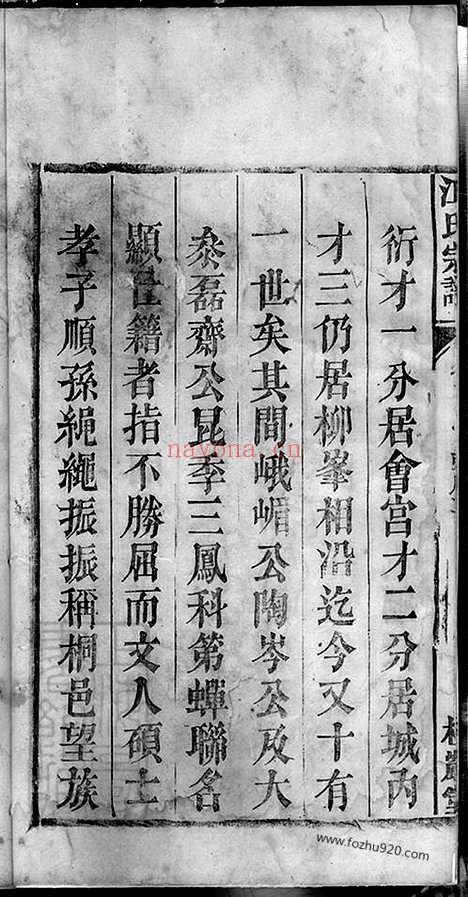 江氏宗譜
衍才一分居會宮才二分居城內
才三仍居柳峯相沿迄今又十有
一世矣其間峨嵋公陶岑公及大
叅磊齋公昆季三鳳科第蟬聯名
顯仕籍者指不勝屈而文人碩士
孝子順孫繩繩振振稱桐邑望族
nayona.cn
www.fozhu920.com